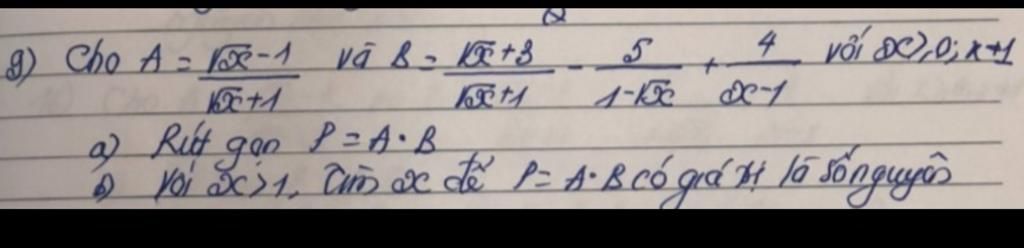 g) Cho A = (√x - 1)/(√x + 1) và B = (√x + 3)/(√x + 1) - 5/(1 - √x) + 4/(x - 1) với x ≥ 0; x ≠ 1
a) Rút gọn P = A · B
b) Với x > 1, Tìm x để P = A · B có giá trị là số nguyên